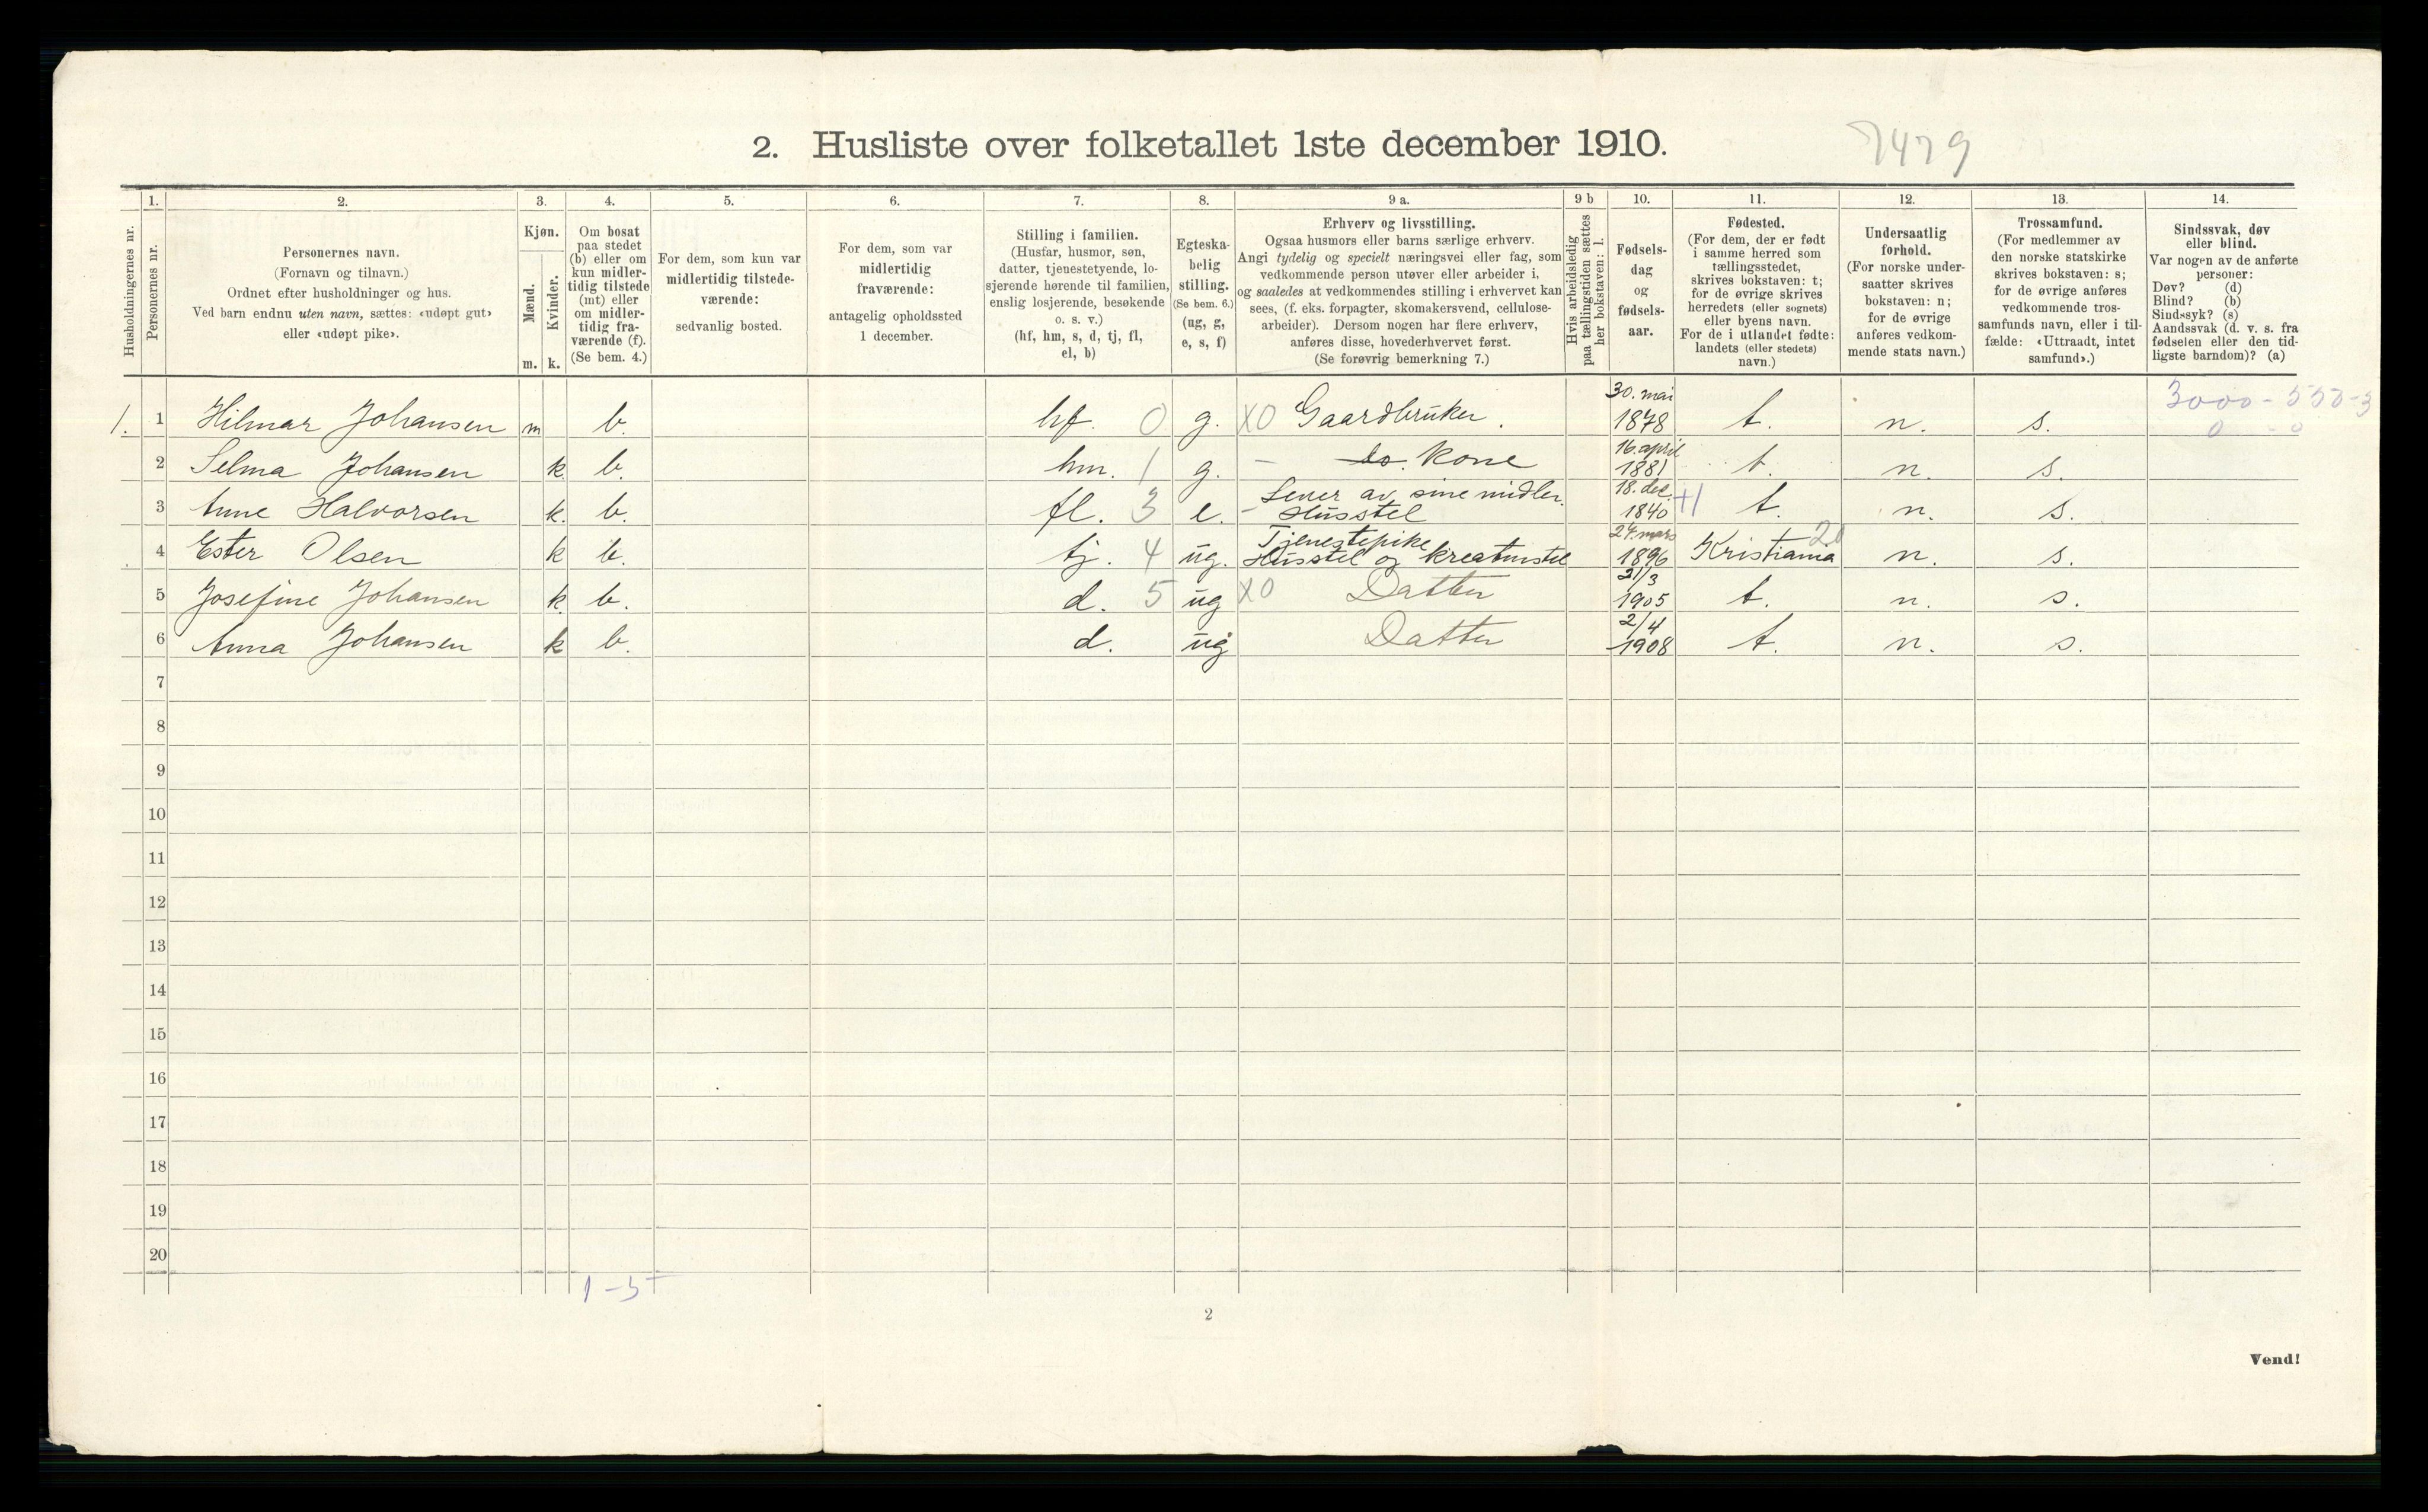 2. Husliste over folketallet 1ste december 1910.
7479
Husholdningernes nr.
1.
Personernes nr.
2.
Personernes navn.
(Fornavn og tilnavn.)
Ordnet efter husholdninger og hus.
Ved barn endnu uten navn, sættes: «udøpt gut»
eller «udøpt pike».
3.
Kjøn.
Mænd.
Kvinder.
m. k.
4.
Om bosat
paa stedet
(b) eller om
kun midler-
tidig tilstede
(mt) eller
om midler-
tidig fra-
værende (f).
(Se bem. 4.)
5.
For dem, som kun var
midlertidig tilstede-
værende:
sedvanlig bosted.
6.
For dem, som var
midlertidig
fraværende:
antagelig opholdssted
1 december.
7.
Stilling i familien.
(Husfar, husmor, søn,
datter, tjenestetyende, lo-
sjerende hørende til familien,
enslig losjerende, besøkende
o. s. v.)
(hf, hm, s, d, tj, fl,
el, b)
8.
Egteska-
belig
stilling.
(Se bem. 6.)
(ug, g,
e, s, f)
9 a.
Erhverv og livsstilling.
Ogsaa husmors eller barns særlige erhverv.
Angi tydelig og specielt næringsvei eller fag, som
vedkommende person utøver eller arbeider i,
og saaledes at vedkommendes stilling i erhvervet kan
sees, (f. eks. forpagter, skomakersvend, cellulose-
arbeider). Dersom nogen har flere erhverv,
anføres disse, hovederhvervet først.
(Se forøvrig bemerkning 7.)
9 b
Hvis arbeidsledig
paa tællingstiden sættes
her bokstaven: l.
10.
Fødsels-
dag
og
fødsels-
aar.
11.
Fødested.
(For dem, der er født
i samme herred som
tællingsstedet,
skrives bokstaven: t;
for de øvrige skrives
herredets (eller sognets)
eller byens navn.
For de i utlandet fødte:
landets (eller stedets)
navn.)
12.
Undersaatlig
forhold.
(For norske under-
saatter skrives
bokstaven: n;
for de øvrige
anføres vedkom-
mende stats navn.)
13.
Trossamfund.
(For medlemmer av
den norske statskirke
skrives bokstaven: s;
for de øvrige anføres
vedkommende tros-
samfunds navn, eller i til-
fælde: «Uttraadt, intet
samfund».)
14.
Sindssvak, døv
eller blind.
Var nogen av de anførte
personer:
Døv? (d)
Blind? (b)
Sindssyk? (s)
Aandssvak (d. v. s. fra
fødselen eller den tid-
ligste barndom)? (a)
1. 1 Hilmar Johansen m b. hf. 0 g. X0 Gaardbruker. 30. mai 1878 t. n. s. 3000-550-3
0 - 0
2 Selma Johansen k b. hm. 1 g. - do. Kone 16. april 1881 t. n. s.
3 Anne Halvorsen k. b. fl. 3 e. - Lever av sine midler. Husstel 18. dec. 1840 +1 t. n. s.
4 Ester Olsen k b. tj. 4 ug. Tjenestepike Husstel og kreaturstel 24. mars 1896 Kristiania 20 n. s.
5 Josefine Johansen k. b. d. 5 ug X0 Datter 21/3 1905 t. n. s.
6 Anna Johansen k b. d. ug Datter 2/4 1908 t. n. s.
7
8
9
10
11
12
13
14
15
16
17
18
19
20
1-5
2
Vend!